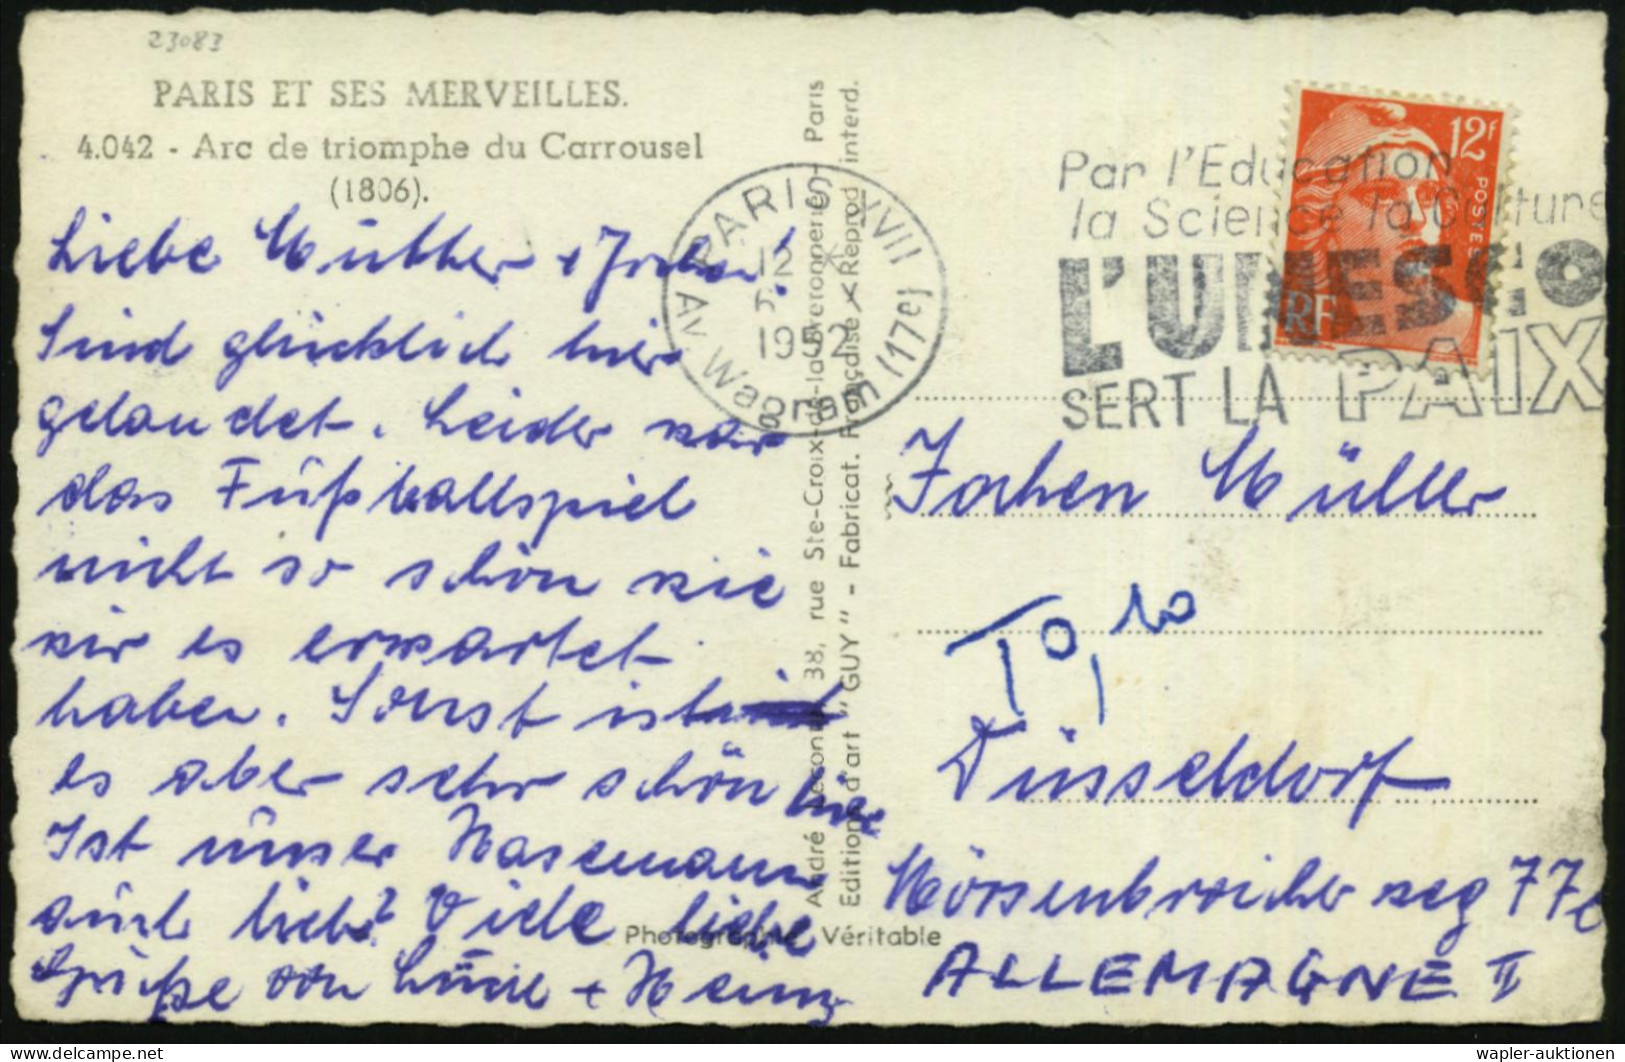 23083
PARIS ET SES MERVEILLES.
4.042 - Arc de triomphe du Carrousel
(1806).
Liebe Mutter + Jochen!
Sind glücklich hier
gelandet. Leider war
das Fußballspiel
nicht so schön wie
wir es erwartet
haben. Sonst ist
es aber sehr schön hier
Ist unser Hasemann
auch lieb? Viele liebe
Grüße von + Heinz
PARIS XVII
12
1952
Av. Wagram (17e)
André Leconte 38, rue Ste-Croix-de-la-Bretonnerie - Paris
Editions d'art "GUY" - Fabricat. Française - Reprod. interd.
Photographie Véritable
Par l'Education
la Science la Culture
L'UNESCO
SERT LA PAIX
12f
POSTES
RF
Jochen Müller
T 0,10
Düsseldorf
Mörsenbroicher weg 77c
ALLEMAGNE II
wapler-auktionen
delcampe.net